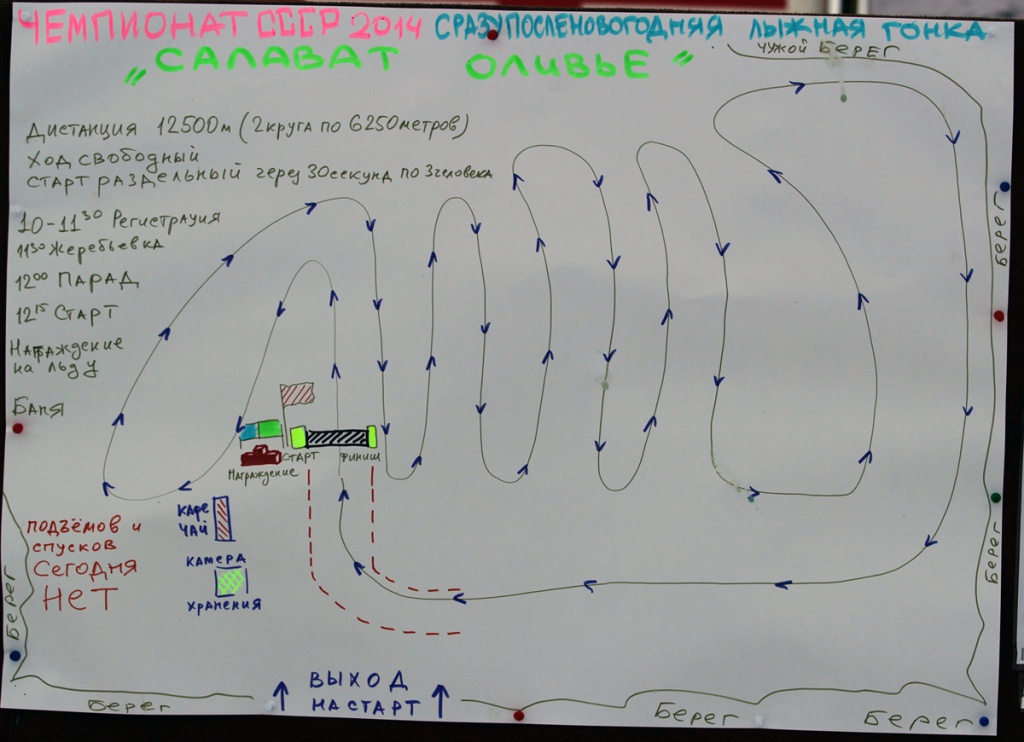 ЧЕМПИОНАТ СССР 2014 СРАЗУПОСЛЕНОВОГОДНЯЯ ЛЫЖНАЯ ГОНКА
„САЛАВАТ ОЛИВЬЕ"
ЧУЖОЙ БЕРЕГ
ДИСТАНЦИЯ 12500м (2 круга по 6250 метров)
ХОД СВОБОДНЫЙ
СТАРТ РАЗДЕЛЬНЫЙ через 30 секунд по 3 человека
10-11³⁰ Регистрация
11³⁰ Жеребьевка
12⁰⁰ ПАРАД
12¹⁵ СТАРТ
Награждение
на льду
Баня
Берег
СТАРТ
ФИНИШ
Награждение
КАФЕ
ЧАЙ
КАМЕРА
ХРАНЕНИЯ
ПОДЪЁМОВ и
спусков
СЕГОДНЯ
НЕТ
Берег
Берег
Берег
ВЫХОД
НА СТАРТ
Берег
Берег